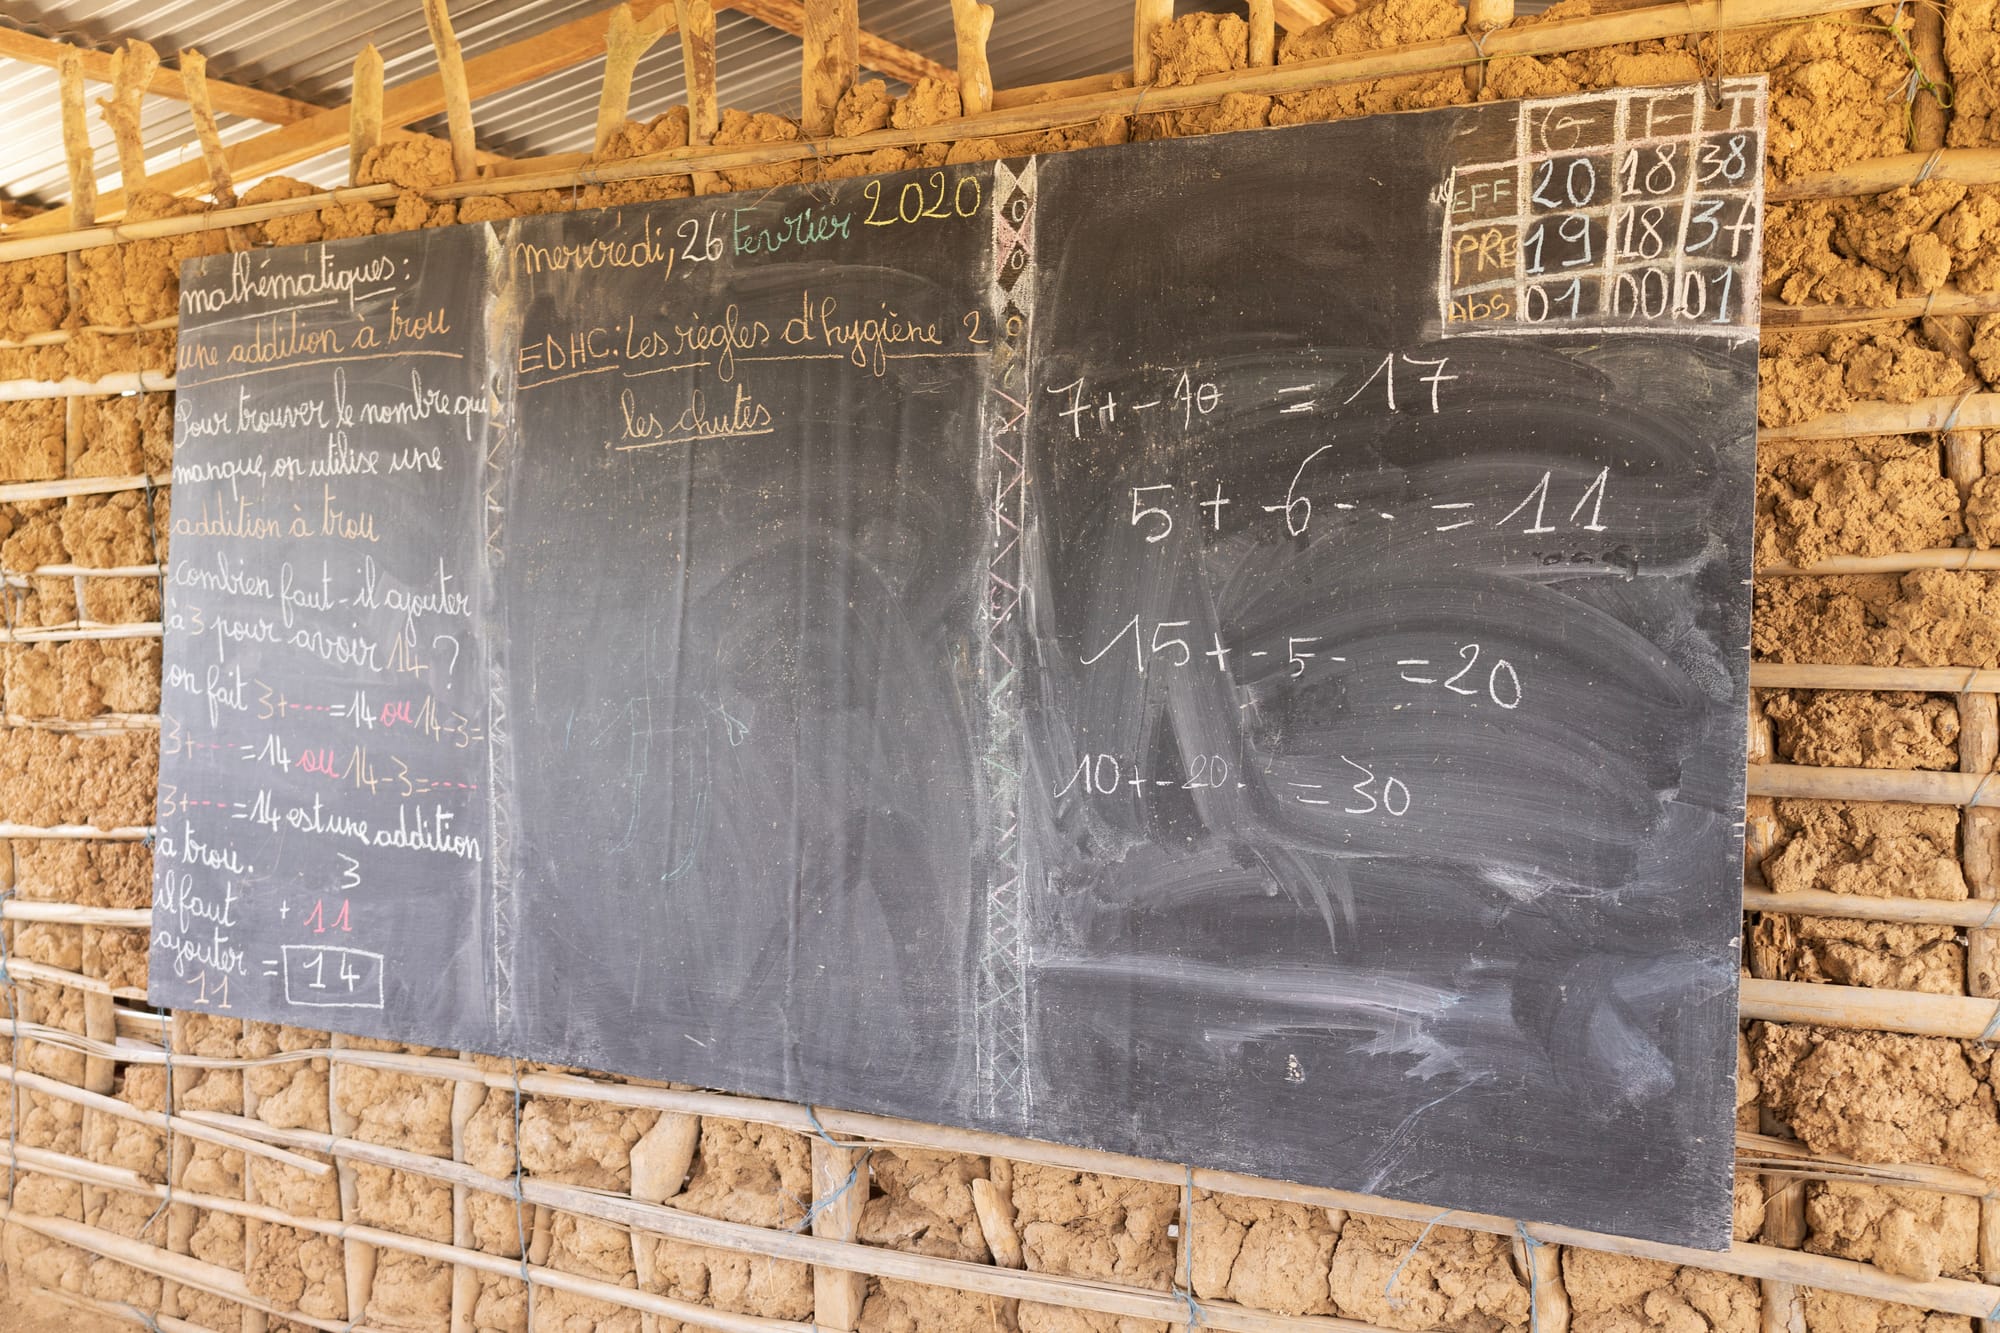 mathématiques:
une addition à trou
Pour trouver le nombre qui
manque, on utilise une
addition à trou
Combien faut-il ajouter
à 3 pour avoir 14 ?
on fait 3+----=14 ou 14-3=
3+----=14 ou 14-3=----
3+----=14 est une addition
à trou.
il faut
ajouter
11
3
+ 11
= 14
mercredi, 26 Fevrier 2020
EDHC: Les règles d'hygiène 2
les chutes
G F T
EFF 20 18 38
PRE 19 18 37
Abs 01 00 01
7+-10 = 17
5+-6--. = 11
15+-5- =20
10+-20. =30